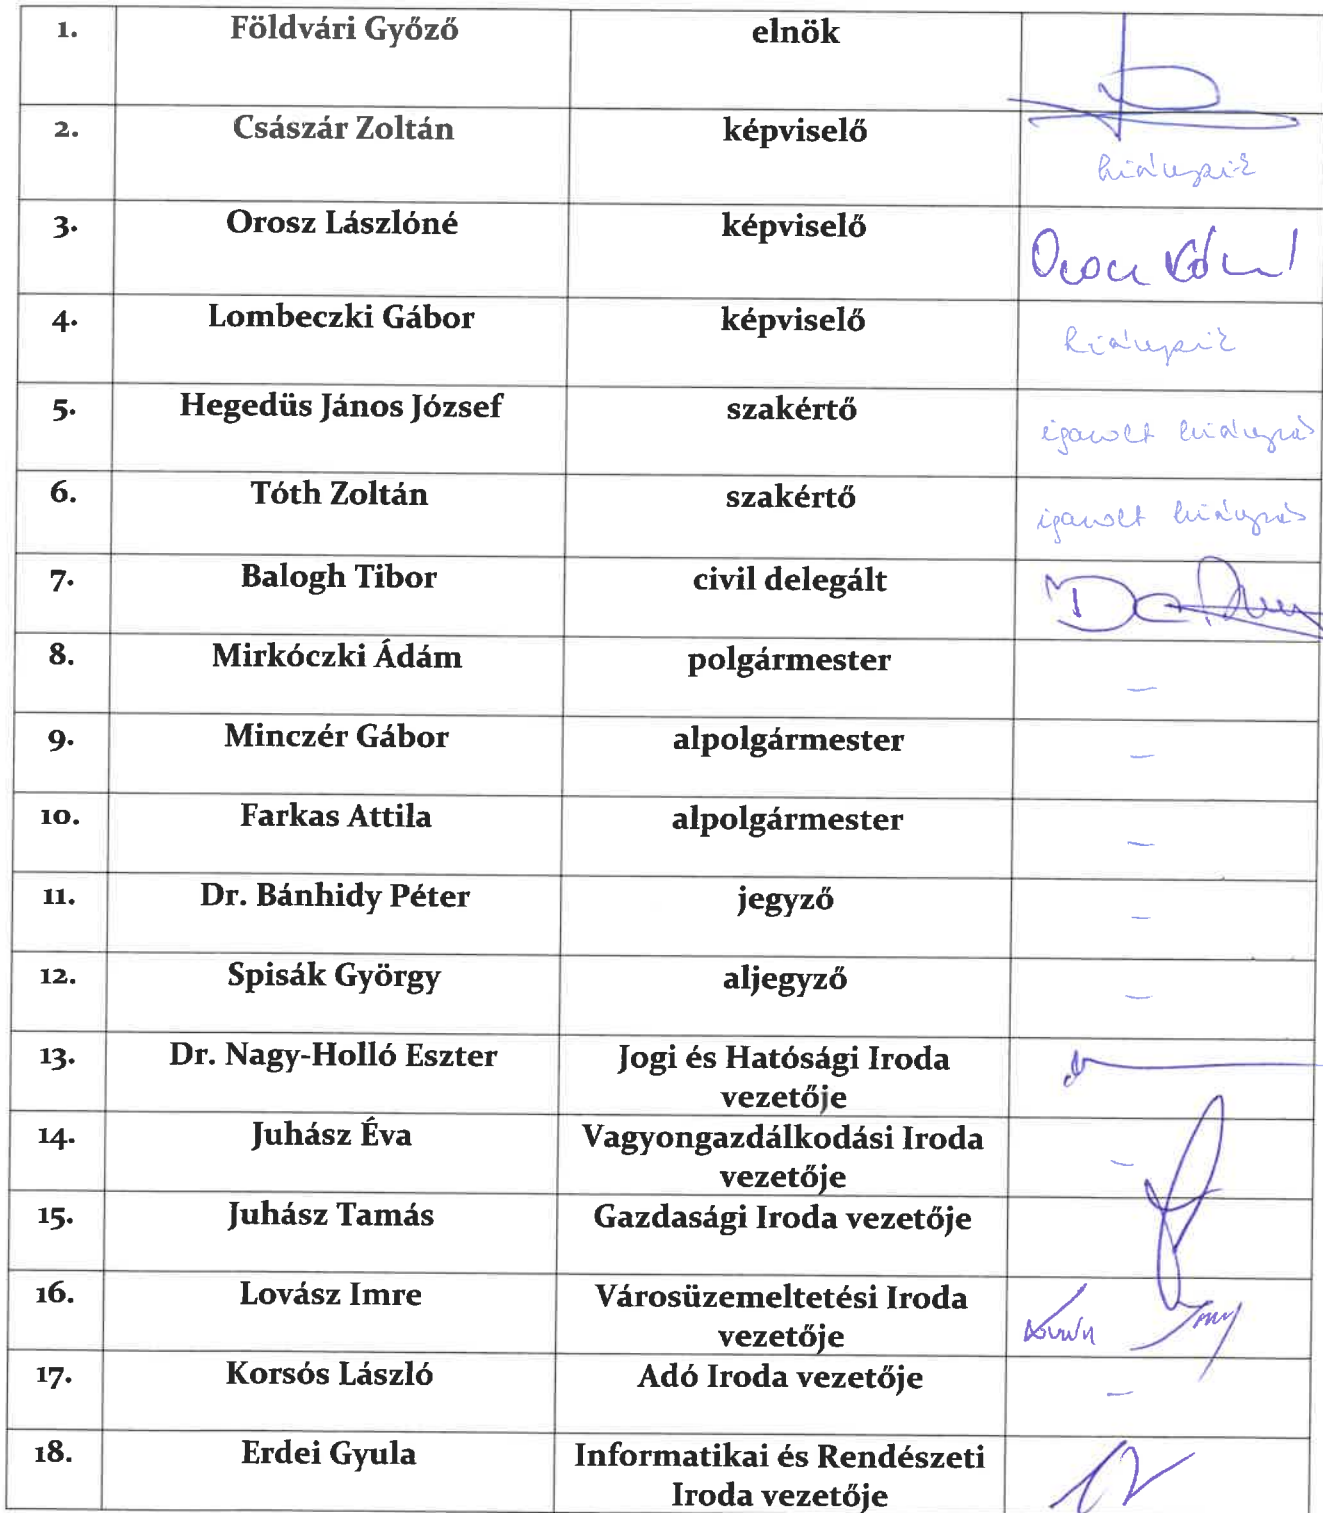 1. Földvári Győző elnök
2. Császár Zoltán képviselő hiányzik
3. Orosz Lászlóné képviselő
4. Lombeczki Gábor képviselő hiányzik
5. Hegedüs János József szakértő igazolt hiányzás
6. Tóth Zoltán szakértő igazolt hiányzás
7. Balogh Tibor civil delegált
8. Mirkóczki Ádám polgármester –
9. Minczér Gábor alpolgármester –
10. Farkas Attila alpolgármester –
11. Dr. Bánhidy Péter jegyző –
12. Spisák György aljegyző –
13. Dr. Nagy-Holló Eszter Jogi és Hatósági Iroda
vezetője
14. Juhász Éva Vagyongazdálkodási Iroda –
vezetője
15. Juhász Tamás Gazdasági Iroda vezetője
16. Lovász Imre Városüzemeltetési Iroda
vezetője
17. Korsós László Adó Iroda vezetője –
18. Erdei Gyula Informatikai és Rendészeti
Iroda vezetője